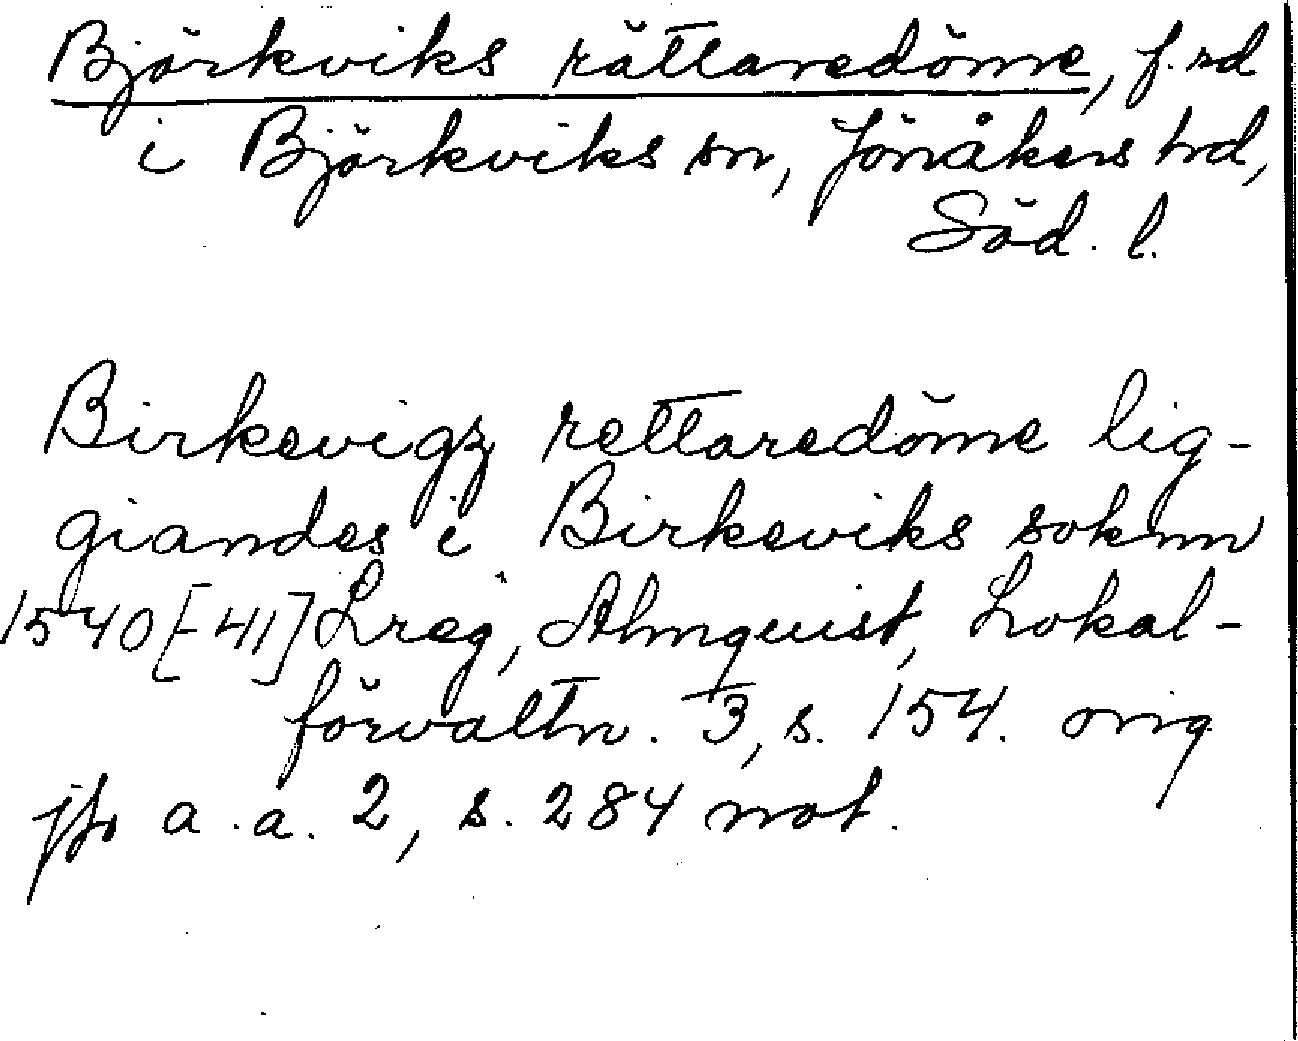 Björkviks rättaredöme, f. rd
i Björkviks sn, Jönåkers hd,
Söd. l.
Birkevigz rettaredöme lig-
giandes i Birkeviks soknn
1540[-41] Lreg, Almquist, Lokal-
förvaltn. 3, s. 154. orig
jfr a.a. 2, s. 284 not.